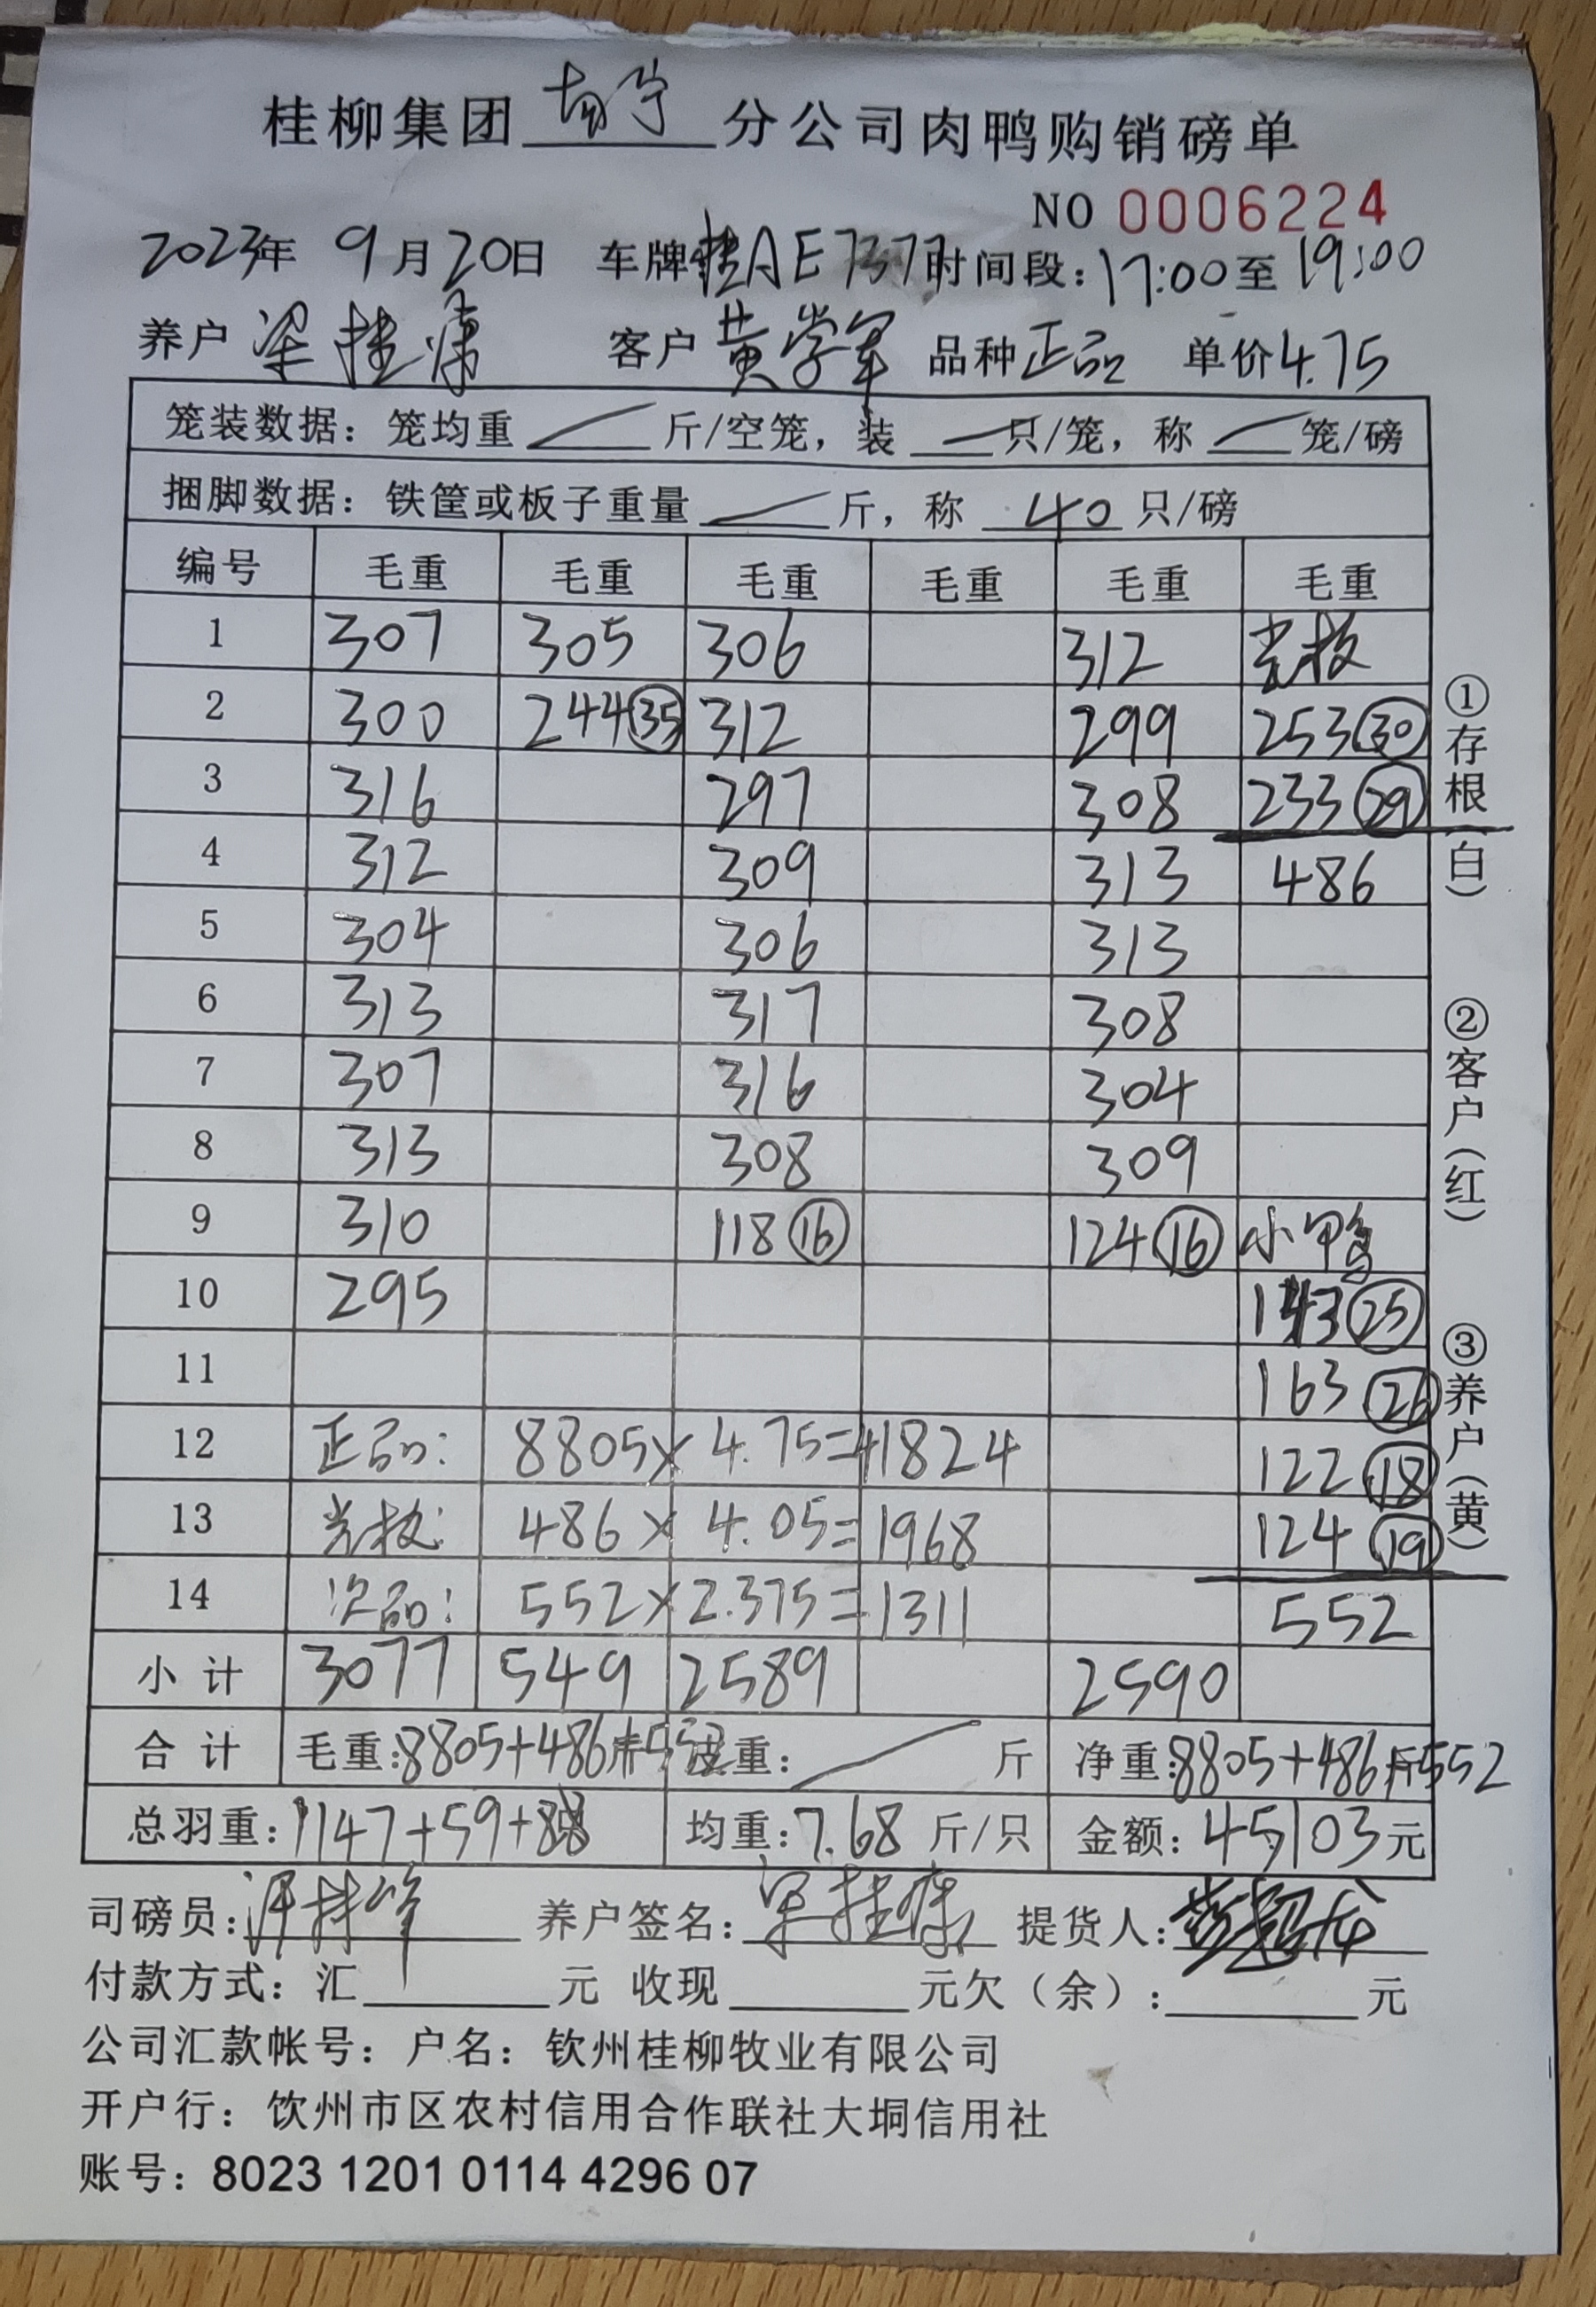 桂柳集团南宁分公司肉鸭购销磅单
NO 0006224
2023年 9月20日 车牌桂AE7377时间段:17:00至19:00
养户梁桂康 客户黄学军 品种正品 单价4.75
笼装数据:笼均重 斤/空笼,装 只/笼,称 笼/磅
捆脚数据:铁筐或板子重量 斤,称 40 只/磅
编号 毛重 毛重 毛重 毛重 毛重 毛重
1 307 305 306 312 光板
2 300 244㉟ 312 299 253㉚
3 316 297 308 233㉙
4 312 309 313 486
5 304 306 313
6 313 317 308
7 307 316 304
8 313 308 309
9 310 118⑯ 124⑯ 小鸭
10 295 143㉕
11 163㉖
12 正品: 8805×4.75=41824 122⑱
13 光板: 486×4.05=1968 124⑲
14 次品: 552×2.375=1311 552
小计 3077 549 2589 2590
合计 毛重:8805+486+552 皮重: 斤 净重:8805+486斤552
总羽重:1147+59+88 均重:7.68斤/只 金额:45103元
司磅员: 养户签名:梁桂康 提货人:
付款方式:汇 元 收现 元欠(余): 元
公司汇款帐号:户名:钦州桂柳牧业有限公司
开户行:饮州市区农村信用合作联社大垌信用社
账号:8023 1201 0114 4296 07
①存根(白)
②客户(红)
③养户(黄)